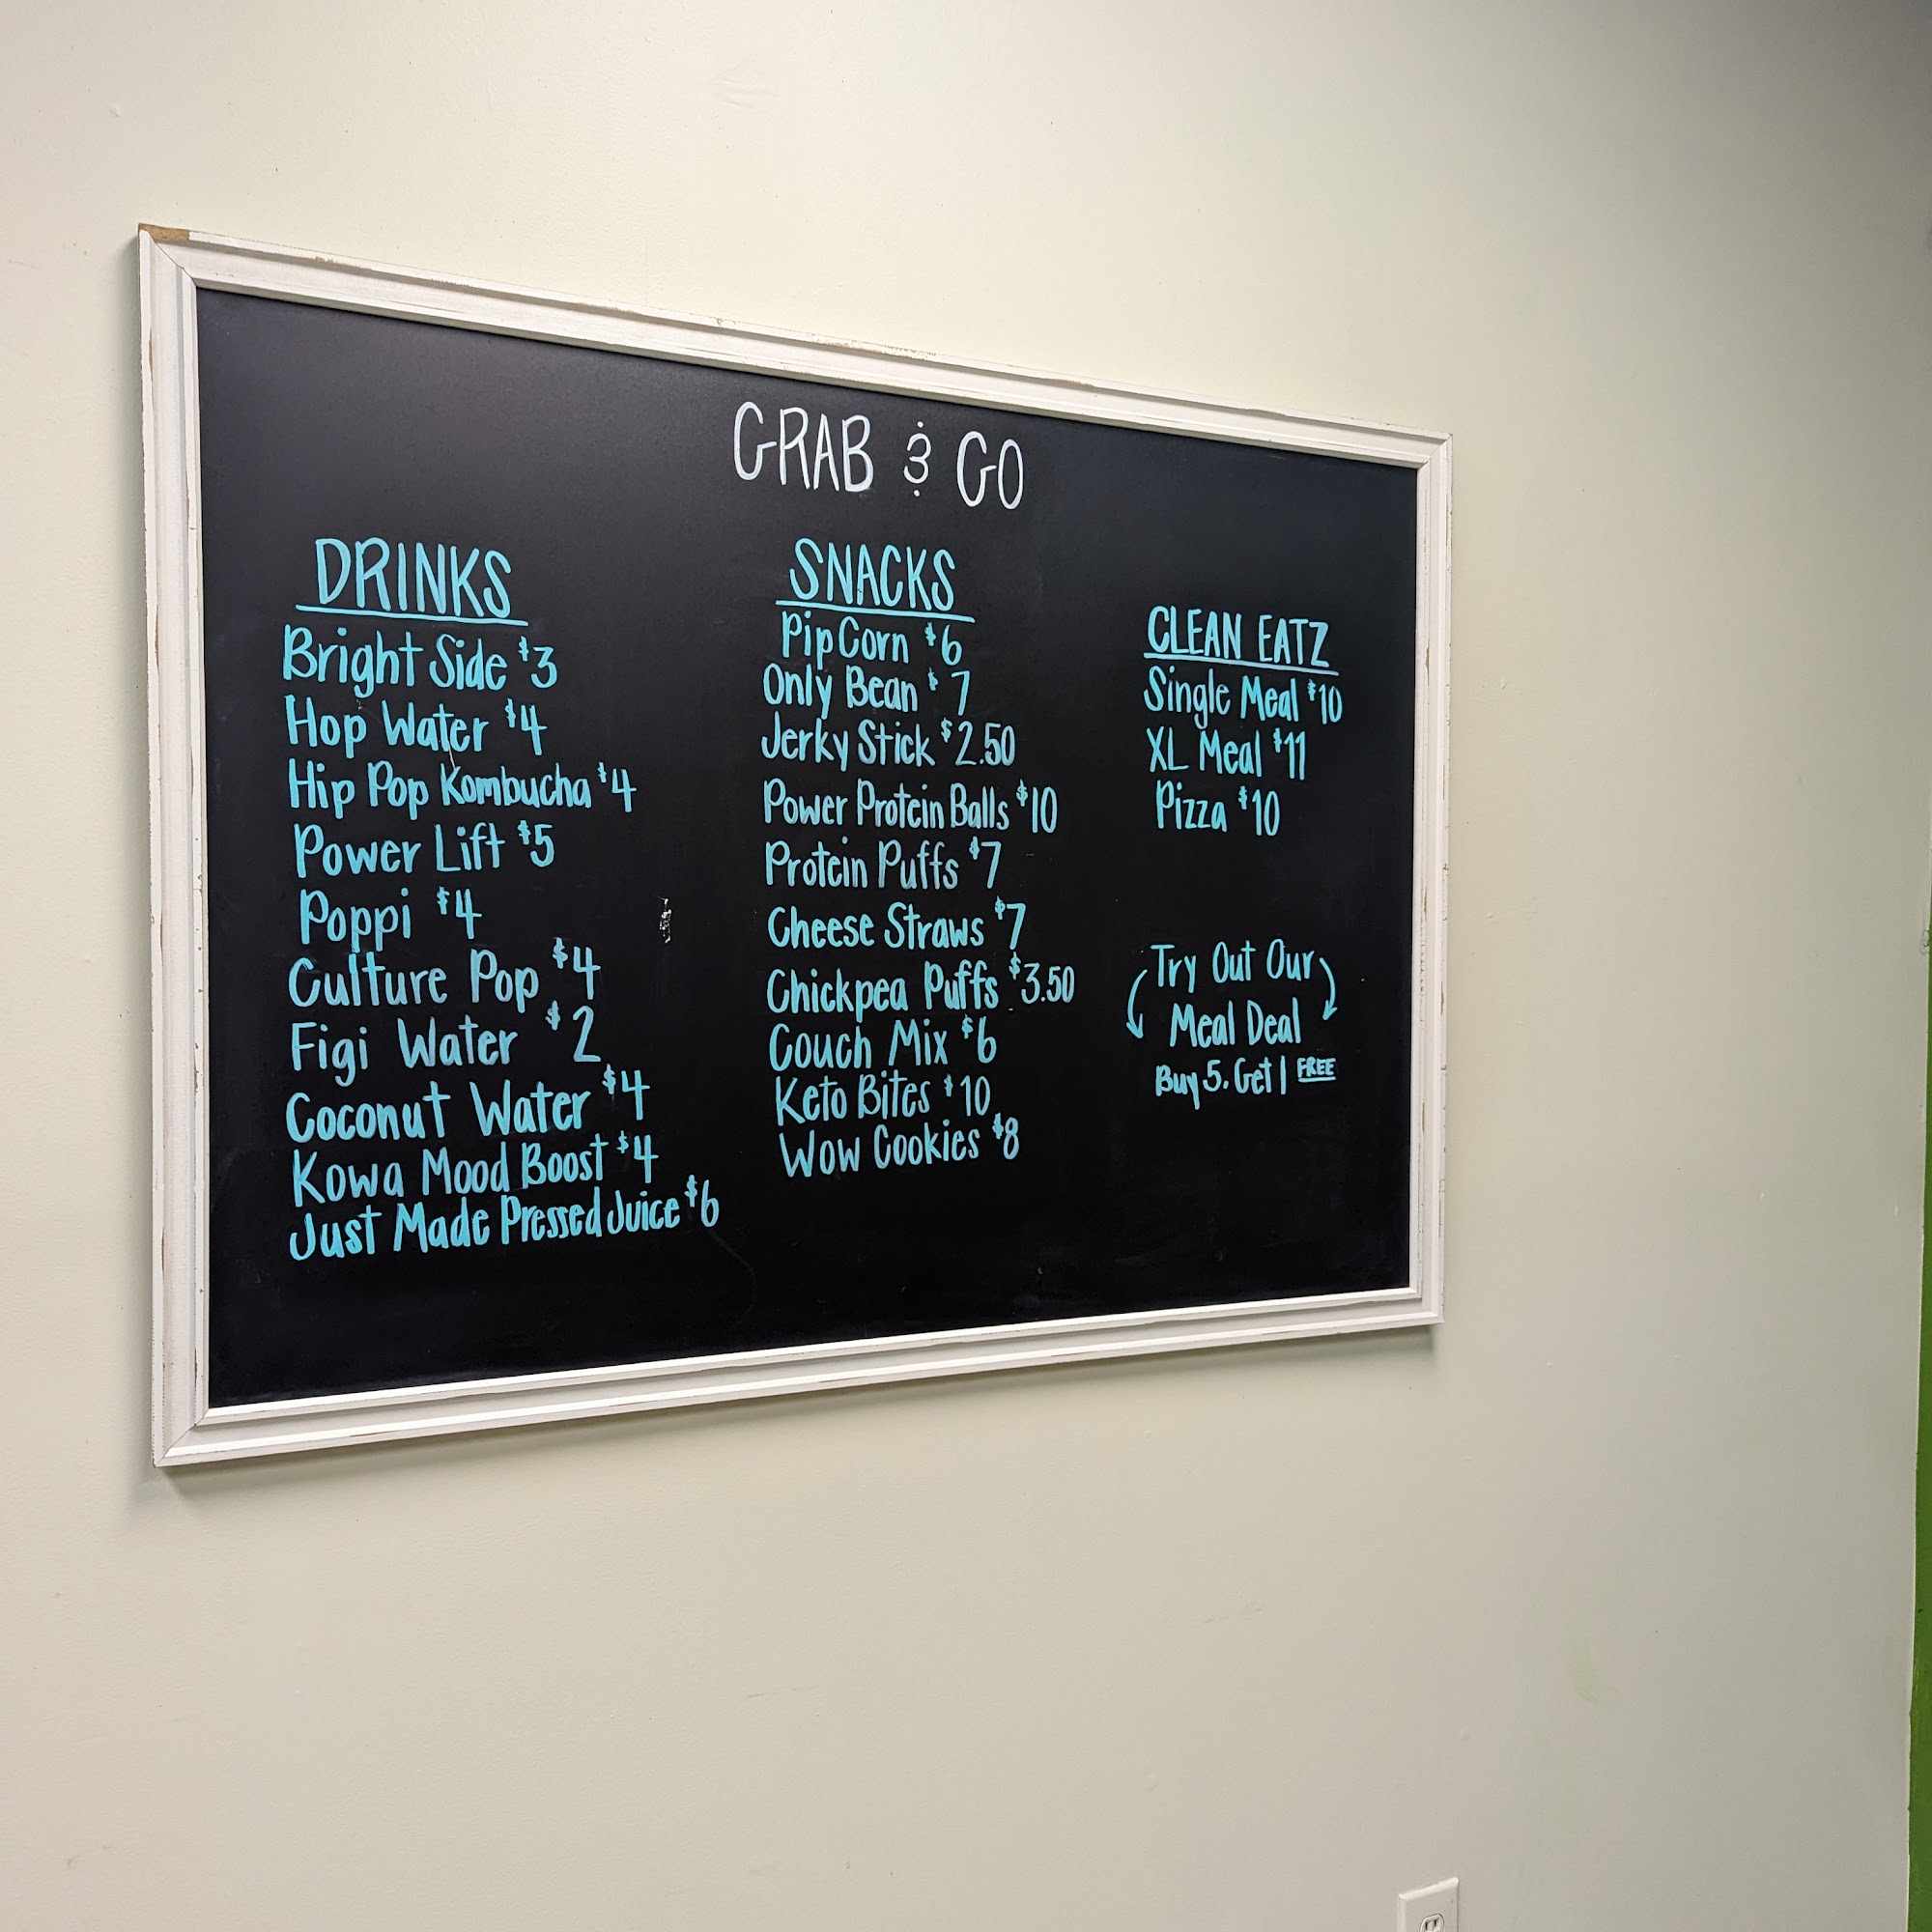 GRAB & GO
DRINKS
Bright Side $3
Hop Water $4
Hip Pop Kombucha $4
Power Lift $5
Poppi $4
Culture Pop $4
Figi Water $2
Coconut Water $4
Kowa Mood Boost $4
Just Made Pressed Juice $6
SNACKS
Pip Corn $6
Only Bean $7
Jerky Stick $2.50
Power Protein Balls $10
Protein Puffs $7
Cheese Straws $7
Chickpea Puffs $3.50
Couch Mix $6
Keto Bites $10
Wow Cookies $8
CLEAN EATZ
Single Meal $10
XL Meal $11
Pizza $10
Try Out Our
Meal Deal
Buy 5. Get 1 FREE